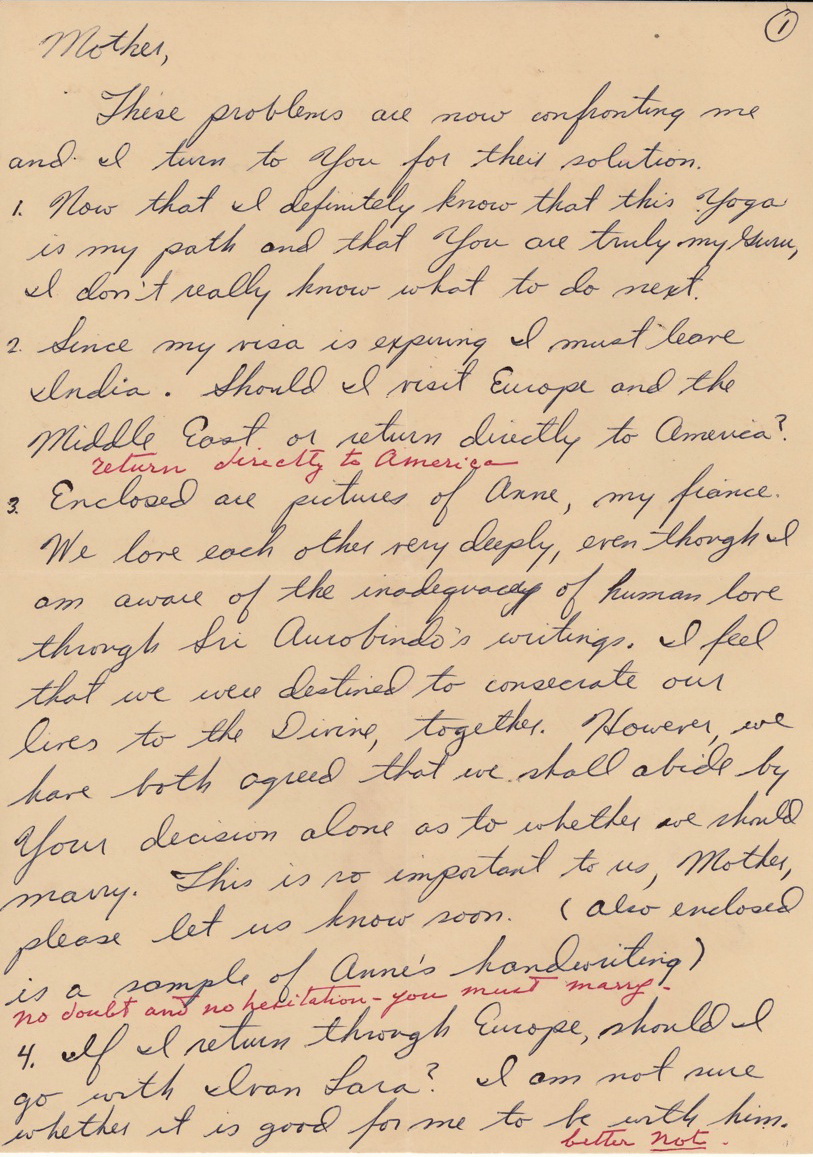 ①
Mother,
These problems are now confronting me
and I turn to You for their solution.
1. Now that I definitely know that this Yoga
is my path and that You are truly my Guru,
I don't really know what to do next.
2. Since my visa is expiring I must leave
India. Should I visit Europe and the
Middle East or return directly to America?
return directly to America
3. Enclosed are pictures of Anne, my fiance.
We love each other very deeply, even though I
am aware of the inadequacy of human love
through Sri Aurobindo's writings. I feel
that we were destined to consecrate our
lives to the Divine, together. However, we
have both agreed that we shall abide by
Your decision alone as to whether we should
marry. This is so important to us, Mother,
please let us know soon. (also enclosed
is a sample of Anne's handwriting)
no doubt and no hesitation - you must marry -
4. If I return through Europe, should I
go with Ivan Lara? I am not sure
whether it is good for me to be with him.
better not.